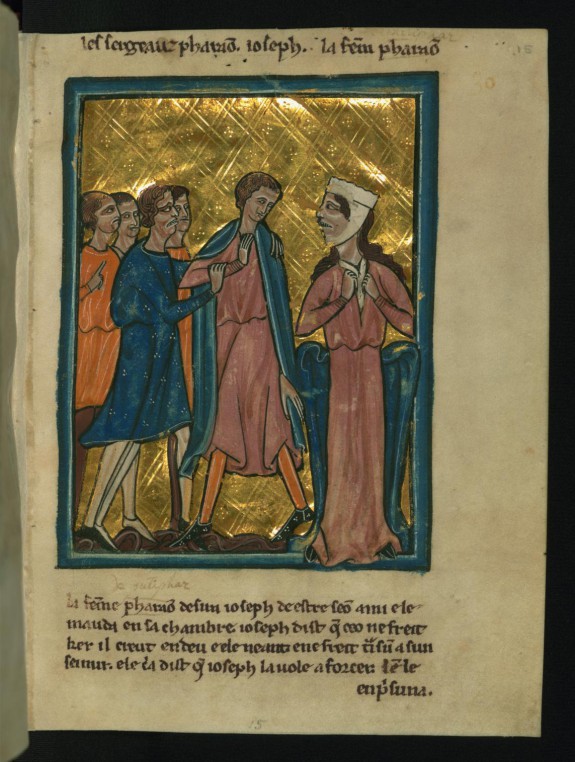 les sergeanz pharao. ioseph. la fem pharaō
la feme pharaō desun ioseph de estre seō ami e le
manda en sa chambre. ioseph dist q̄ ceo ne freit
ker il creut en deu e ele neant e ne freit a sun
seinur. ele dist q̄ ioseph la uole a forcer le
enp̄suna.
15